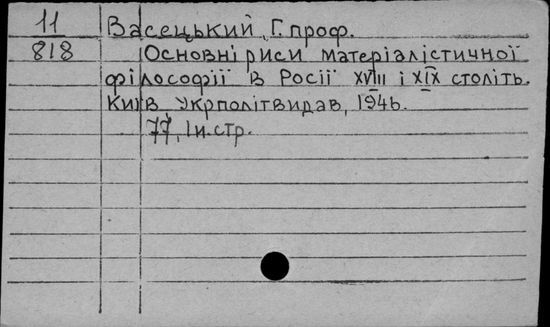 11 Васецький, Г. проф.
818 Основні риси матеріалістичної
філософії в Росії XVIII і XIX століть.
Київ Укрполітвидав, 1946.
77, 1 н. стр.